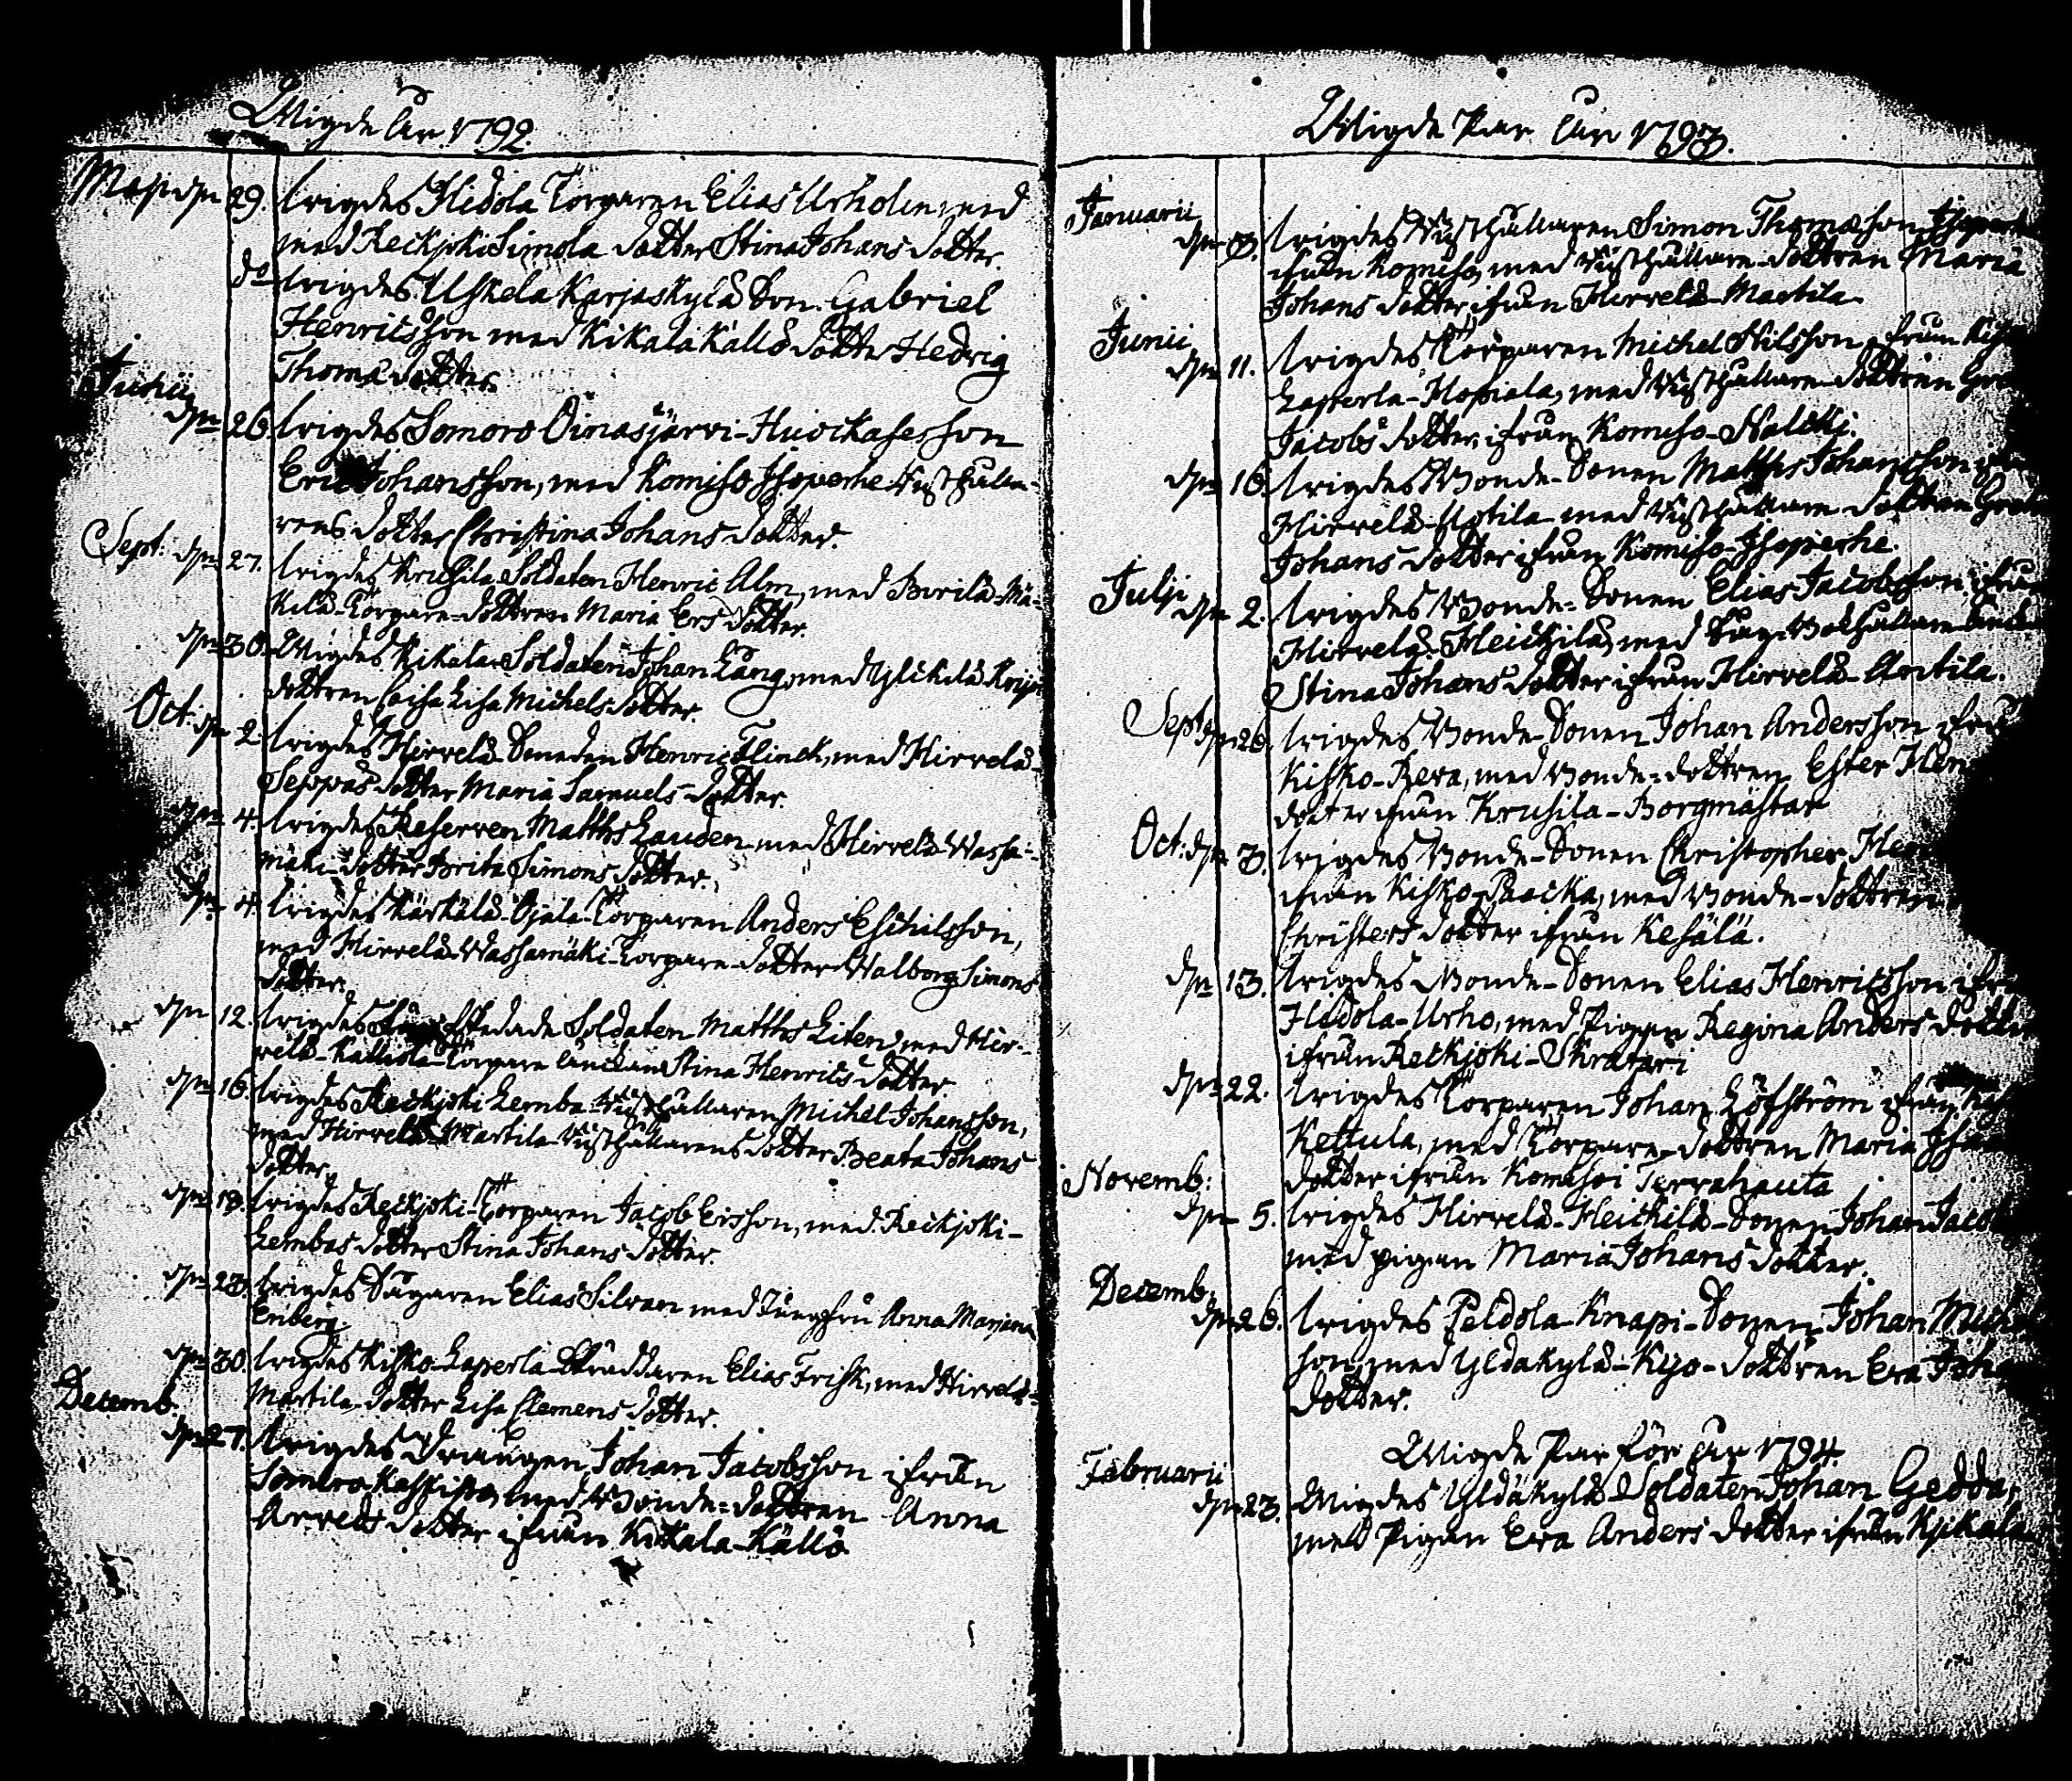 Wigde åhr 1792.
Maji d. 29. wigdes Hidola Torparen Elias Urholm, med
med Reckjoki Simola dotter Stina Johans dotter.
do wigdes Uskela Karjaskylä Son. Gabriel
Henricsson med Kikala Källö dotter Hedvig
Thomæ dotter.
Junii
den 26. wigdes Somero Oinasjärvi-Huickases son
Eric Johansson, med Komiso Isoperhe Rusthålla-
rens dotter Christina Johans dotter.
Sept: den 27. wigdes Krusila Soldaten Henric Alm, med Bvrilä-Mä-
kilä Torpare-dottren Maria Ers dotter.
den 30. Wigdes Kikala Soldaten Johan Lång, med Yltkilä
dottren Caisa Lisa Michels dotter.
Oct: den 2. wigdes Hirvelä Smeden Henric Flinck, med Hirvelä-
Seppäs dotter Maria Samuels dotter.
den 4. wigdes Reserven Matths Lauden med Hirvelä Wassa-
mäki-dotter Brita Simons dotter.
den 4. wigdes Kärkälä-Ojala-Torparen Anders Eschilsson,
med Hirvelä-Wassamäki-Torpare-dotter Walborg Simons
dotter.
den 12. wigdes afskedade Soldaten Matths Liten, med Hir-
velä-Kalliola-Torpare Enckan Stina Henrics dotter
den 16. wigdes Reckjoki Lemba-Rusthållaren Michel Johansson,
med Hirvelä-Martila Rusthållarens dotter Beata Johans
dotter.
den 18. wigdes Reckjoki-Torparen Jacob Ersson, med Reckjoki-
Lembas dotter Stina Johans dotter.
den 23. wigdes Sågaren Elias Silvan med Jungfru Anna Marjana
Enberg.
den 30. wigdes Kisko-Laperla-Skräddaren Elias Frisk, med Hirvelä-
Martila-dotter Lisa Clemens dotter.
Decemb.
den 27. wigdes Drängen Johan Jacobsson ifrån
Somero Kaskisto, med Bonde-dottren Anna
Arvids dotter ifrån Kikala-Källö
Wigde Par åhr 1793.
Januarii
den 3. wigdes Rusthållaren Simon Thomæson Isoperhe
ifrån Komiso, med Rusthållare-dottren Maria
Johans dotter, ifrån Hirvelä-Martila.
Junii
den 11. wigdes Torparen Michel Nilsson, ifrån
Laperla-Hopiala, med Rusthållare-dottren
Jacobs dotter, ifrån Komiso-Nalcki.
den 16. wigdes Bonde-Sonen Matths Johansson
Hirvelä-Uotila med Rusthållare dottren
Johans-dotter ifrån Komiso-Isoperhe.
Julii
den 2. wigdes Bonde-Sonen Elias Jacobsson, ifrån
Hirvelä-Heickilä, med
Stina Johans dotter ifrån Hirvelä-Antila.
Sept.
den 26. wigdes Bonde-Sonen Johan Andersson
Kisko-Reva, med Bonde-dottren Ester
dotter ifrån Krusila-Borgmästar
Oct: den 3. wigdes Bonde-Sonen Christopher
ifrån Kisko-Packa, med Bonde-dottren
Christers dotter ifrån Kesälä.
den 13. wigdes Bonde-Sonen Elias Henricsson
Hidola-Urho, med Pigan Regina Anders dotter
ifrån Reckjoki-Skratari
den 22. wigdes Torparen Johan Löfström ifrån
Kettula, med Torpare-dottren Maria
dotter ifrån Komisoi Tervahauta
Novemb:
den 5. wigdes Hirvelä-Heickilä-Sonen Johan
med pigan Maria Johans dotter.
Decemb.
den 26. wigdes Peldola-Knapi-Sonen Johan
son, med Yldäkylä-Kyjo-dottren Eva
dotter.
Wigde Par för åhr 1794.
Februarii
den 23. Wigdes Yldäkylä Soldaten Johan Gedda,
med Pigan Eva Anders dotter ifrån Kjikala